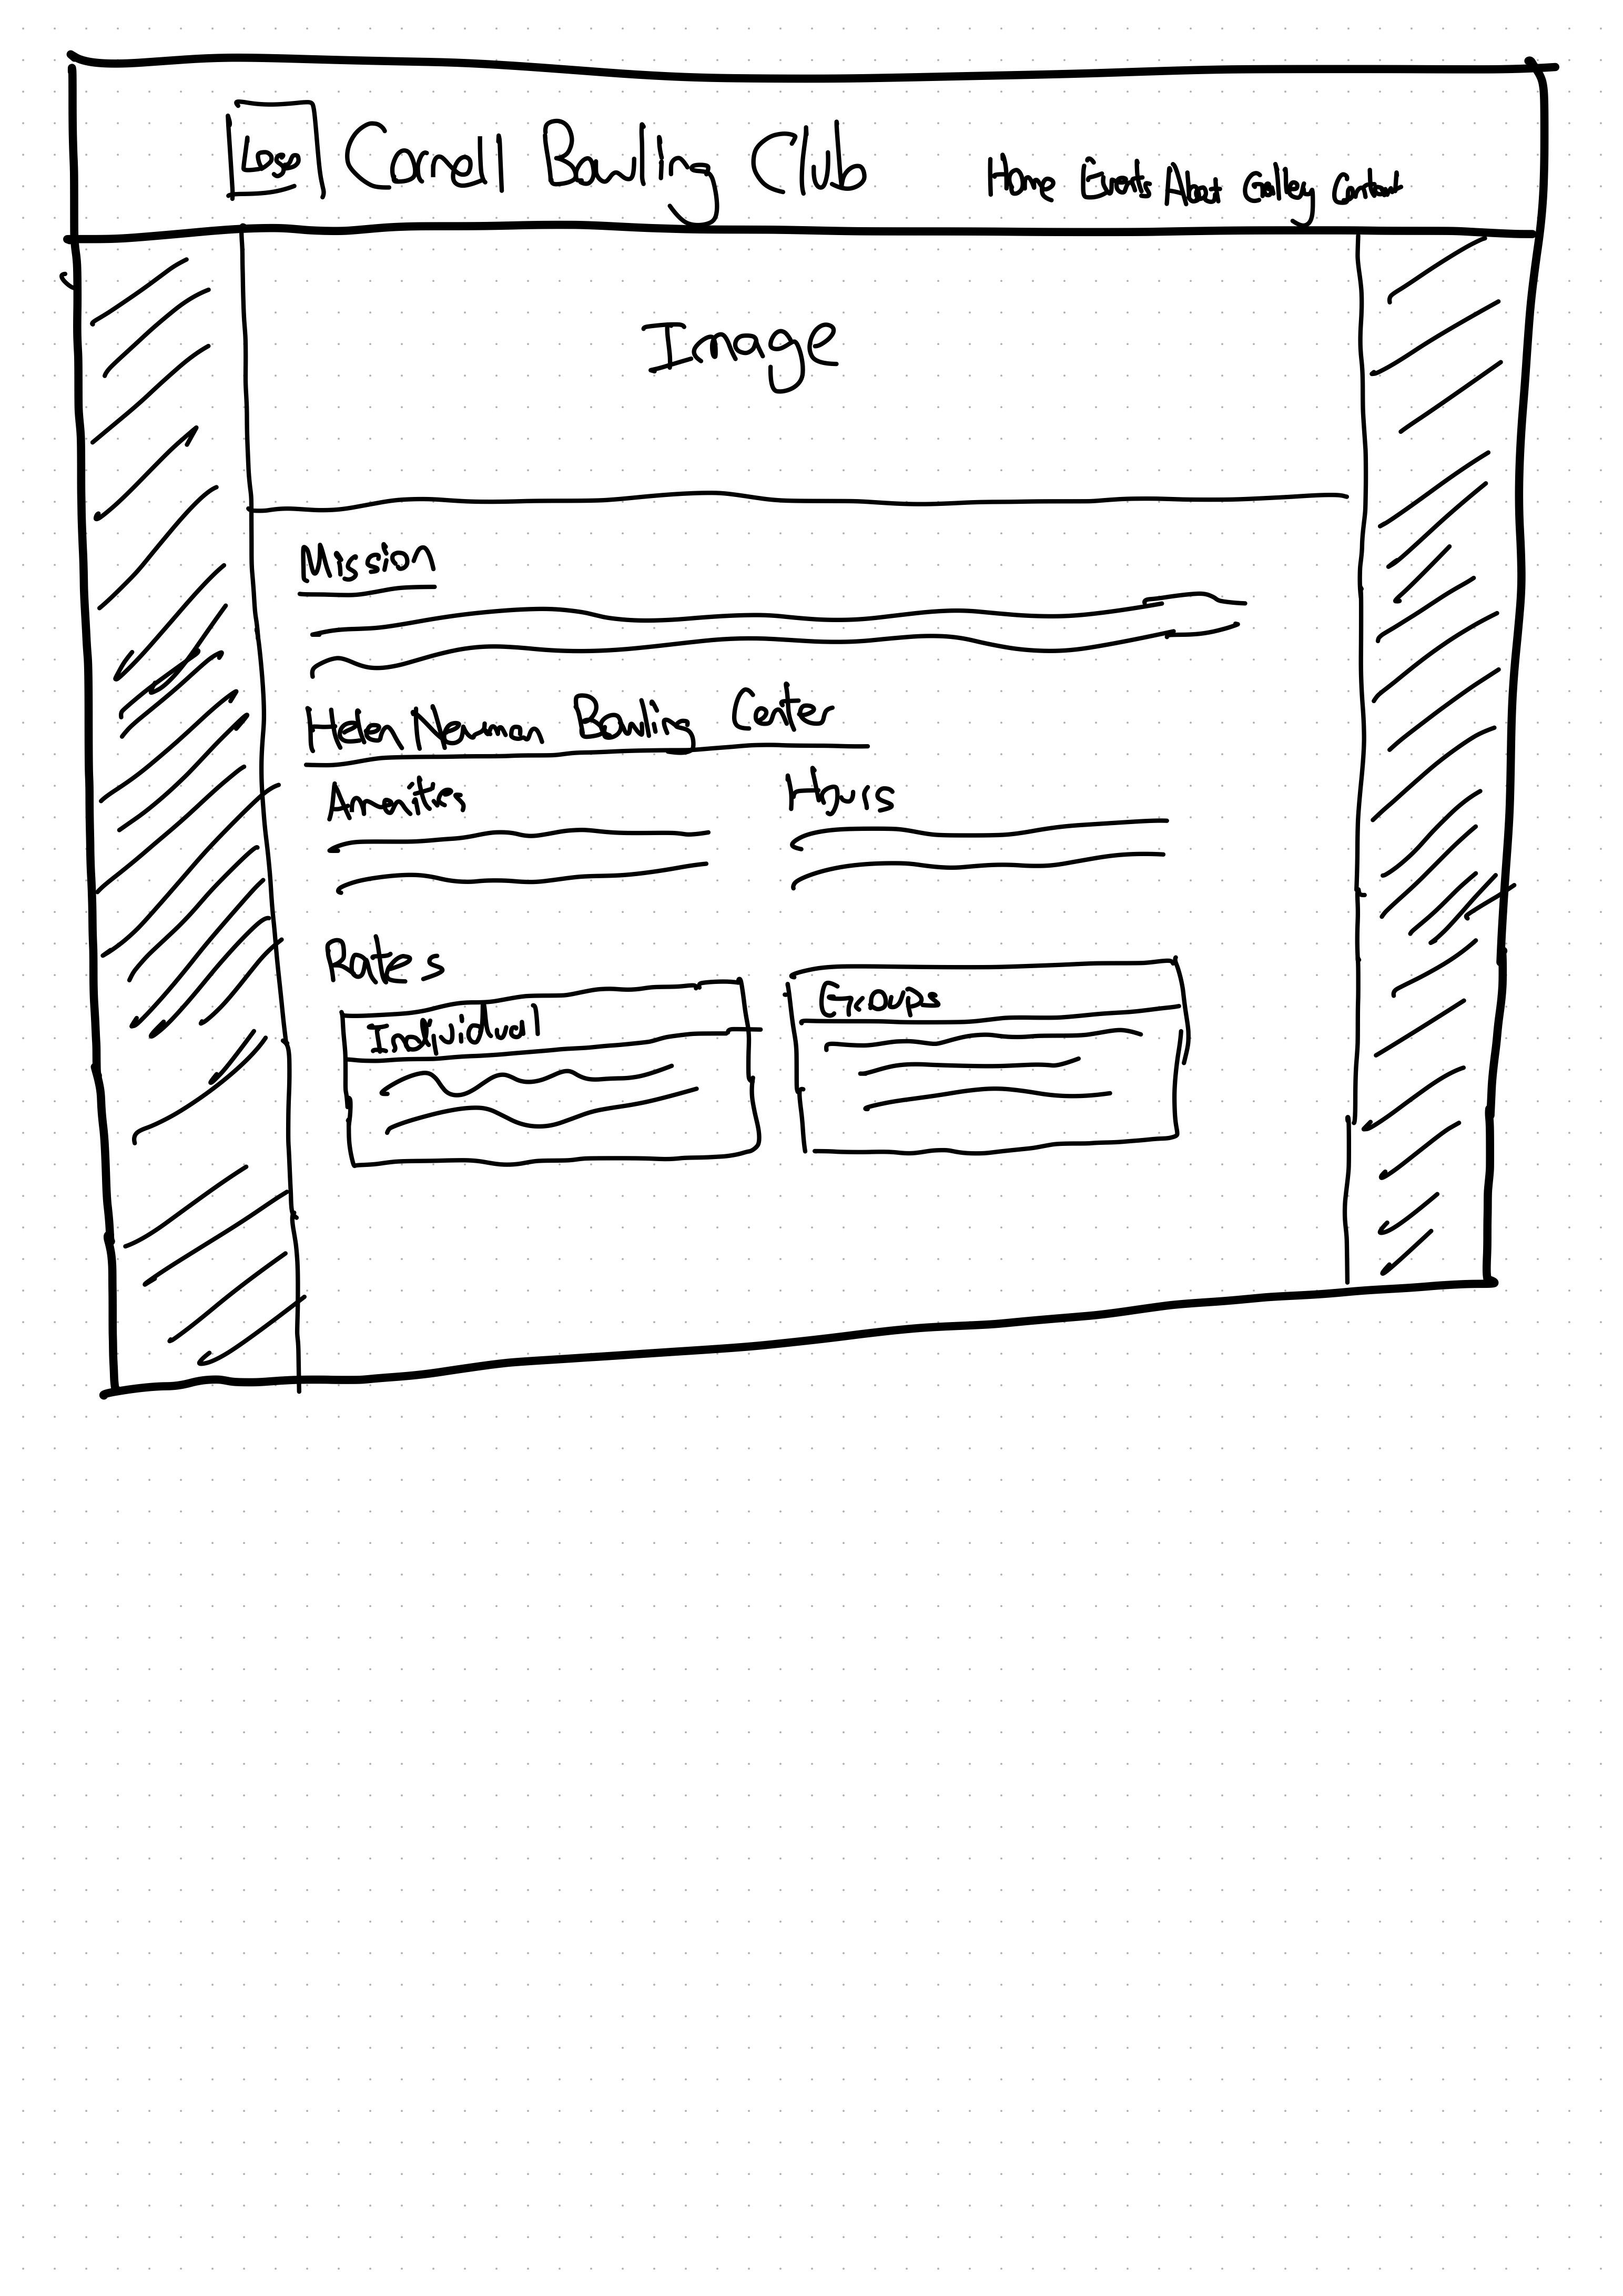 Logo Cornell Bowling Club Home Events About Gallery Contact
Image
Mission
Helen Newman Bowling Center
Amenities Hours
Rates
Individual Groups